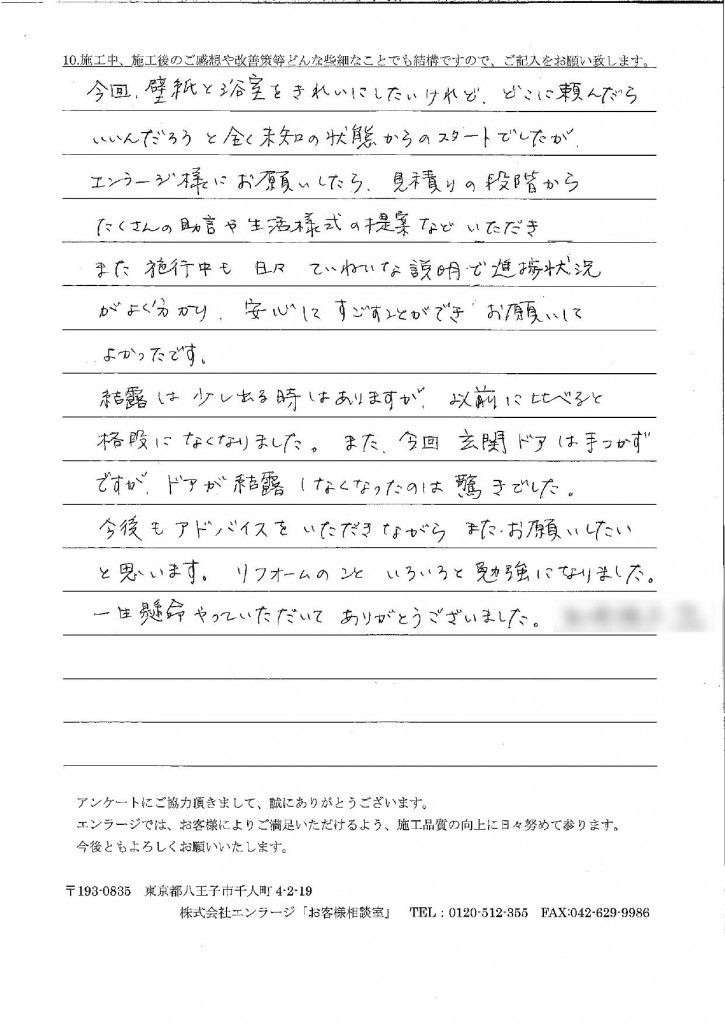 10.施工中、施工後のご感想や改善策等どんな些細なことでも結構ですので、ご記入をお願い致します。
今回、壁紙と浴室をきれいにしたいけれど、どこに頼んだら
いいんだろうと全く未知の状態からのスタートでしたが、
エンラージ様にお願いしたら、見積りの段階から
たくさんの助言や生活様式の提案などいただき
また施行中も日々ていねいな説明で進捗状況
がよく分かり、安心してすごすことができお願いして
よかったです。
結露は少し出る時はありますが、以前に比べると
格段になくなりました。また、今回玄関ドアは手つかず
ですが、ドアが結露しなくなったのは驚きでした。
今後もアドバイスをいただきながらまたお願いしたい
と思います。リフォームのこといろいろと勉強になりました。
一生懸命やっていただいてありがとうございました。
アンケートにご協力頂きまして、誠にありがとうございます。
エンラージでは、お客様によりご満足いただけるよう、施工品質の向上に日々努めて参ります。
今後ともよろしくお願いいたします。
〒193-0835 東京都八王子市千人町4-2-19
株式会社エンラージ「お客様相談室」 TEL：0120-512-355 FAX:042-629-9986